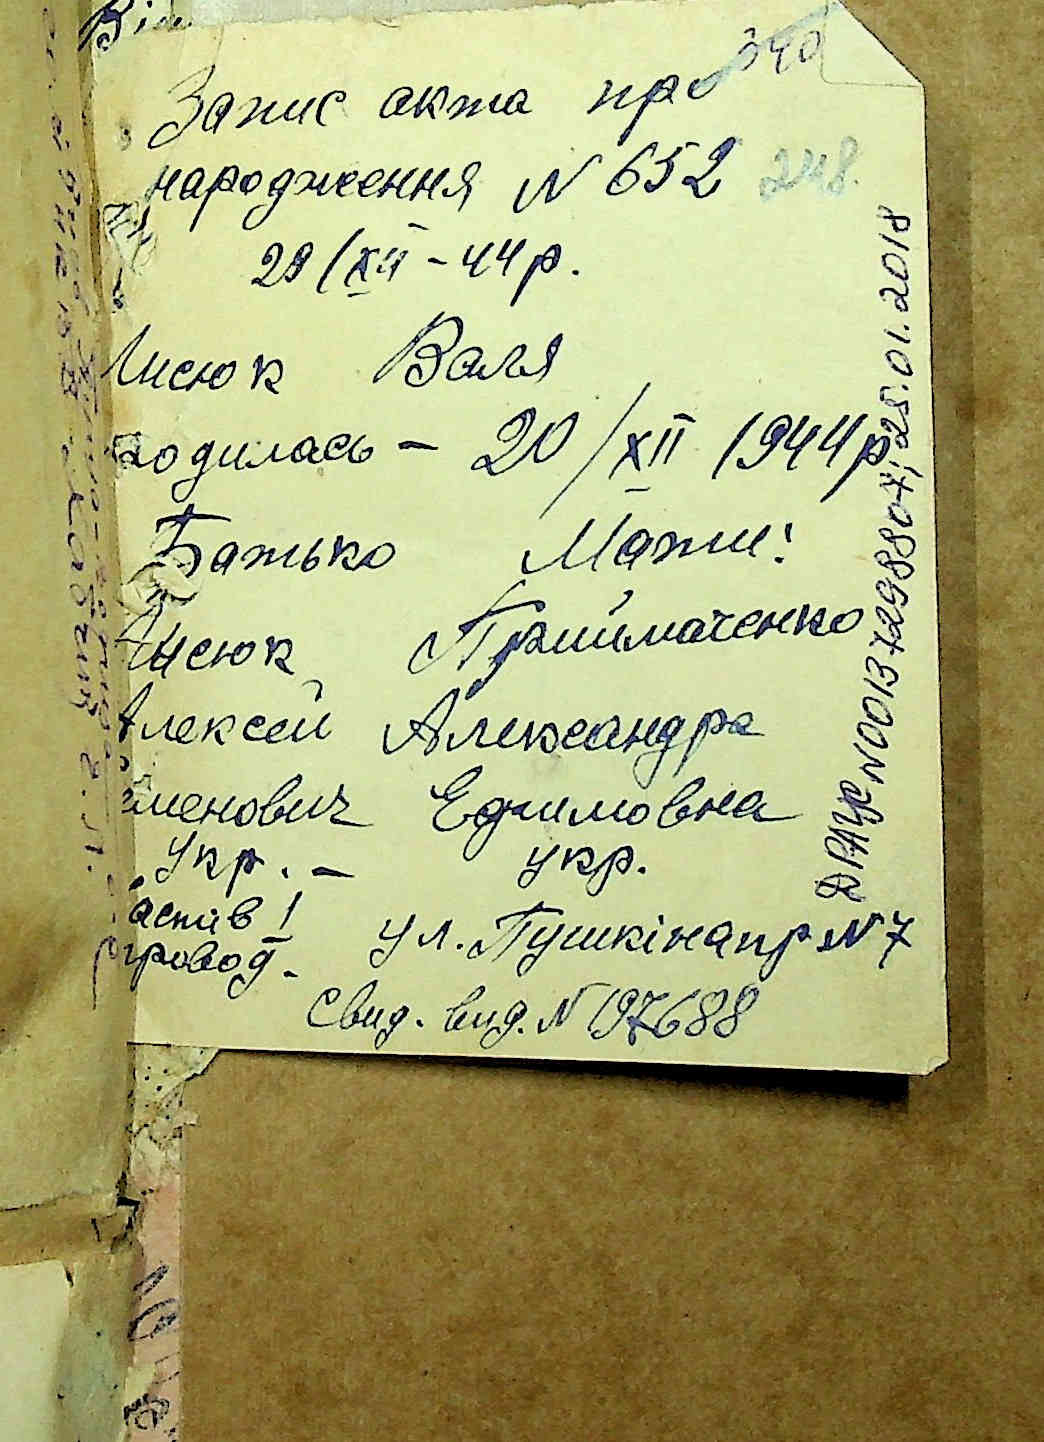 340
Запис акта про
народження N 652 248.
29/XII-44 р.
Лисюк Валя
родилась - 20/XII 1944 р
Батько Мати:
Лисюк Приймаченко
Алексей Александра
менович Ефимовна
укр. - укр.
ул. Пушкінапр N 7
провод.
Свид. вид. N 197688
ДРАЦС N00137298807; 25.01.2018